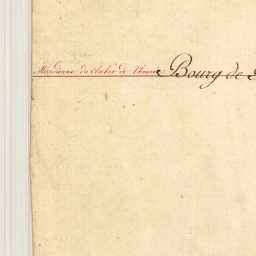 Méridienne du clocher de Bourg de